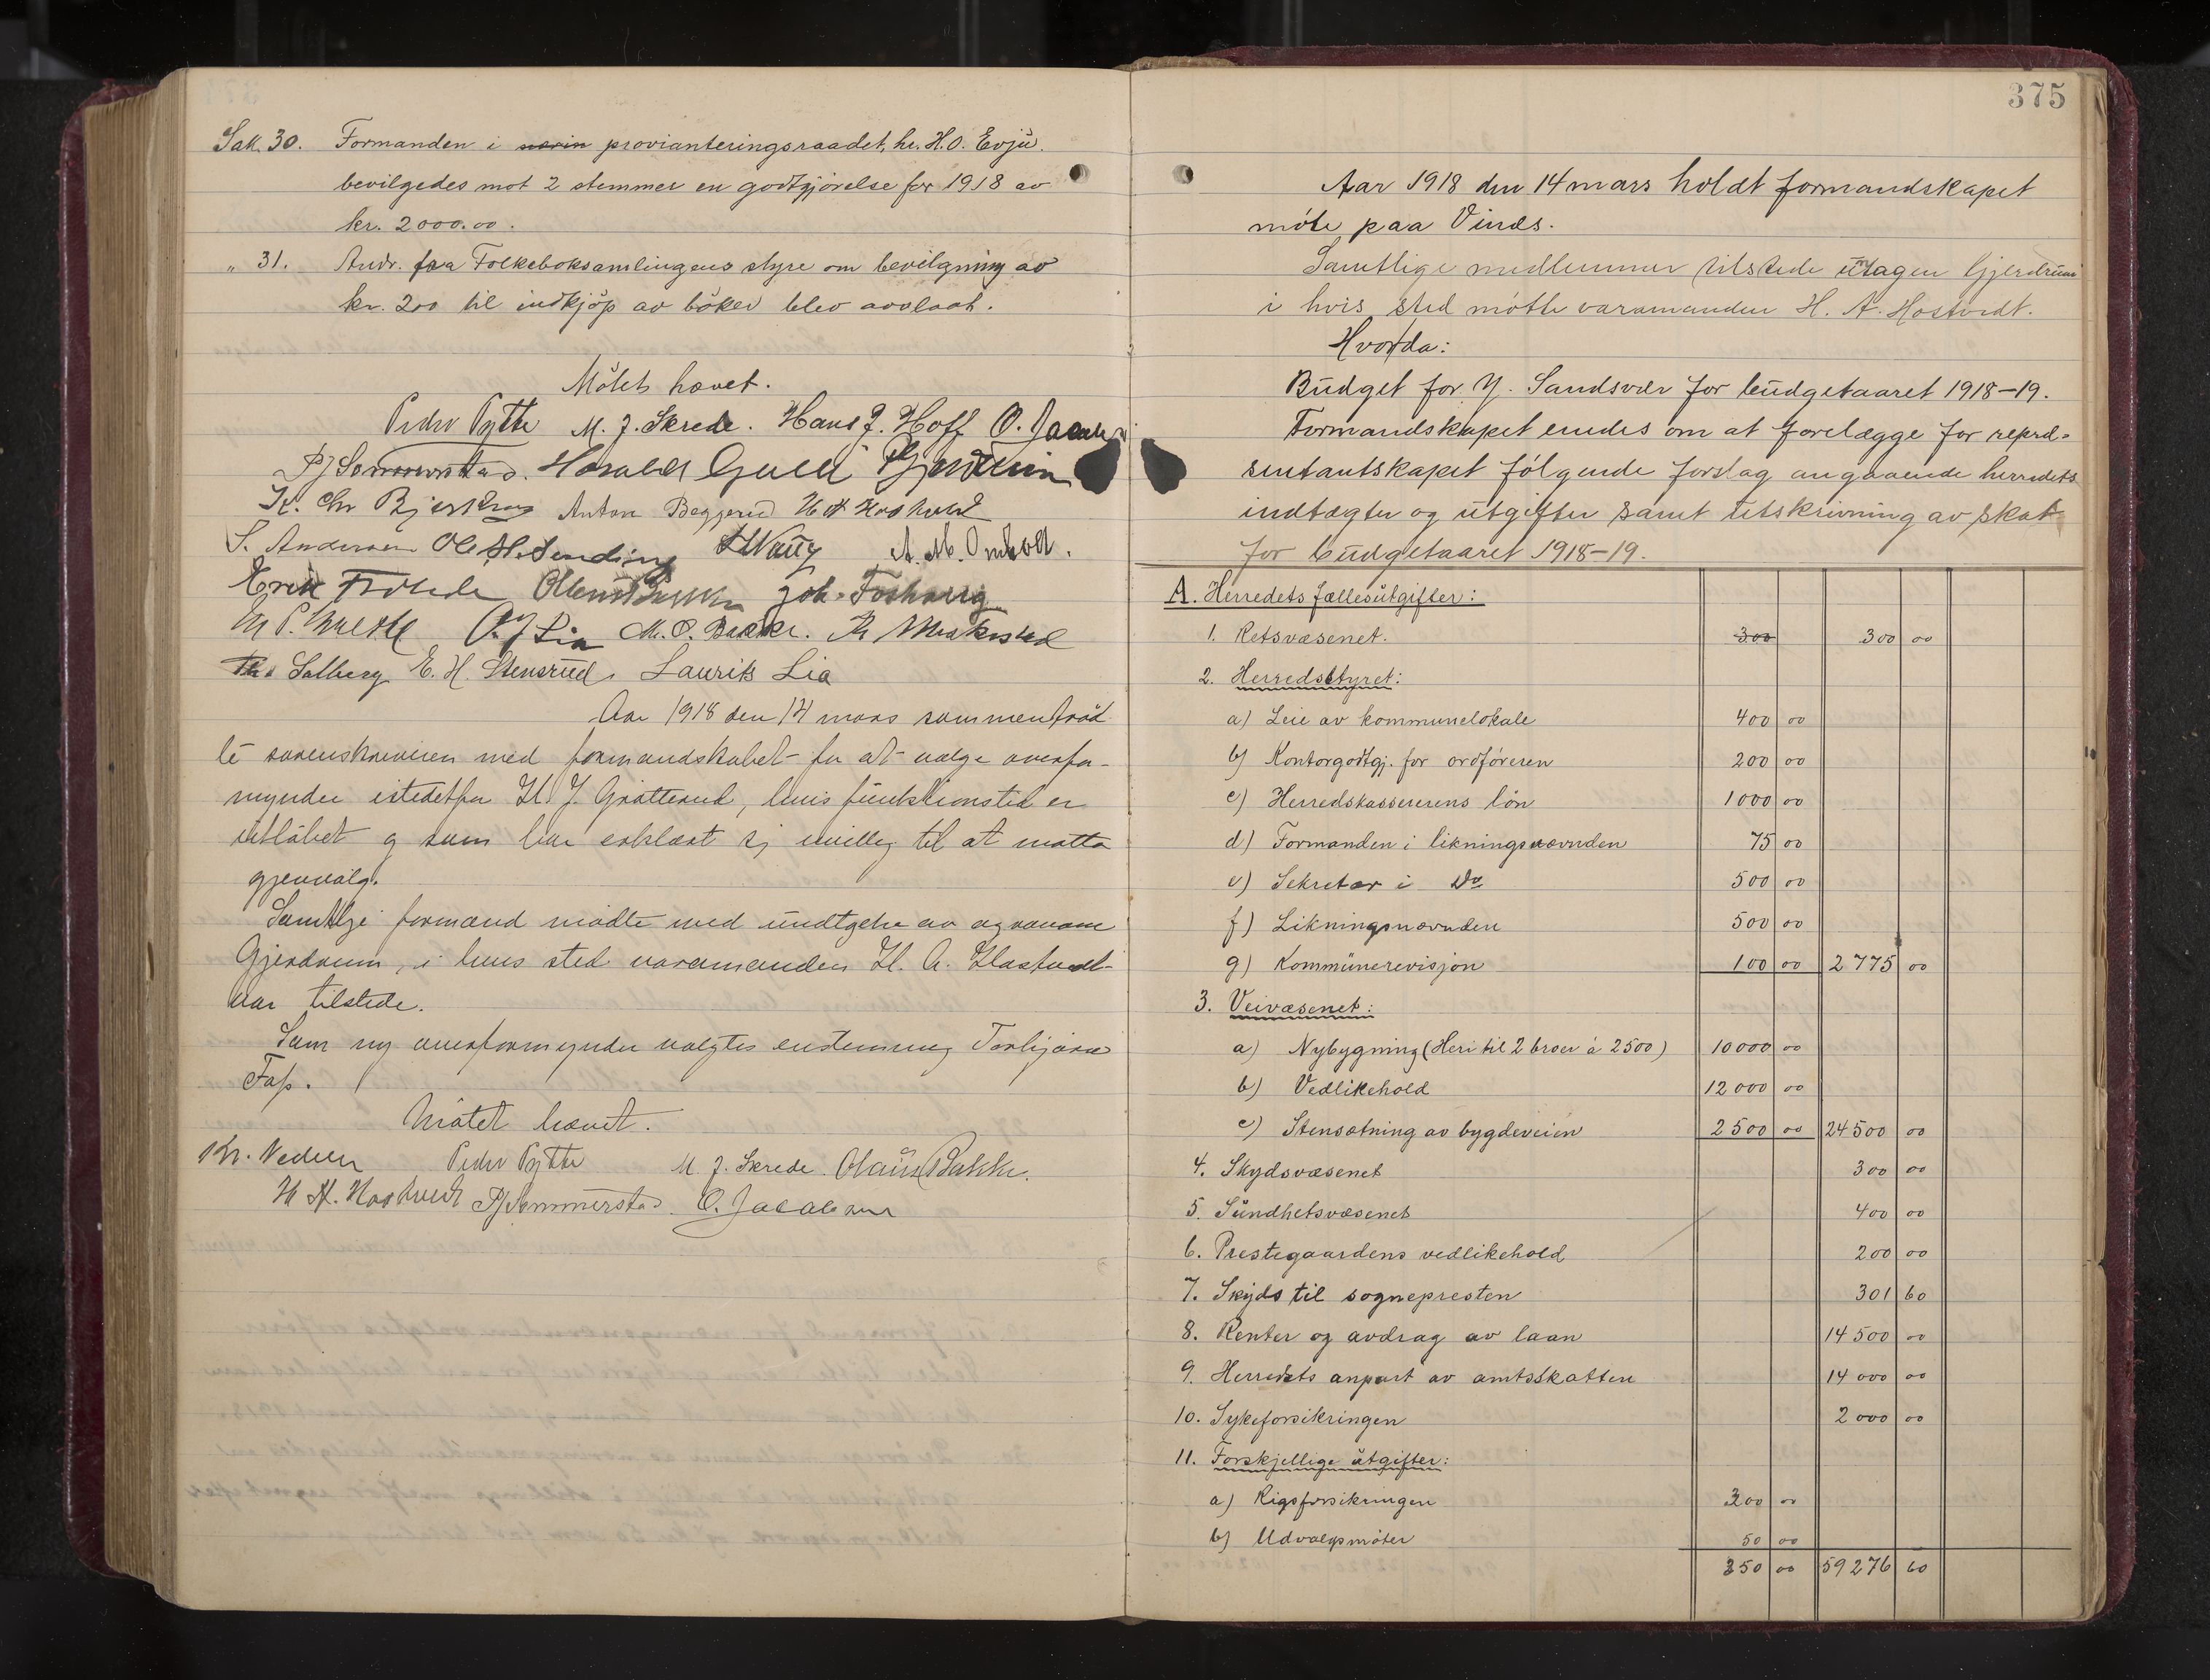 Sak. 30. Formanden i provianteringsraadet, hr. H.O. Evju.
bevilgedes mot 2 stemmer en godtgjörelse for 1918 av
kr. 2000.00.
" 31. Andr. fra Folkeboksamlingens styre om bevilgning av
kr. 200 til indkjöp av böker blev avslaat.
Mötet hævet.
Peder Pytte M. J. Skrede. Hans J. Hoff O. Jacobsen
PJSommerstad. Harald Guldi Gjerdrum
K. Chr Bjerknes Anton Beggerud H A Hostvedt
S. Andersen Ole H. Sending A. M. Omholt.
Erik Olaus Bakke Joh. Foshaug
O. J Lia M. O. Bakke.
Solberg E. H. Stensrud. Laurits Lia
Aar 1918 den 14 mars sammentraad
te sorenskriveren med formandskabet for at vælge overfor-
mynder istedetfor H. J. Grötterud, hvis funktionstid er
utløbet og som har erklært sig uvillig til at motta
gjenvalg.
Samtlige formænd mödte med undtgelse av agronom
Gjerdrum, i hvis sted varamanden H. A. Hastvedt
var tilstede.
Som ny overformynder valgtes enstemmig Torbjörn
Fass.
Mötet hævet.
Kr. Nedeen Peder Pytte M. J. Skrede. Olaus Bakke.
H A. Hostvedt PJSommerstad. O. Jacobsen
375
Aar 1918 den 14 mars holdt formandskapet
möte paa Vinds.
Samtlige medlemmer tilstede untagen Gjerdrum
i hvis sted mötte varamanden H. A. Hostvedt.
Hvorda:
Budget for Y. Sandsvær for budgetaaret 1918-19.
Formandskapet enedes om at forelægge for repræ-
sentantskapet fölgende forslag angaaende herredets
indtægter og utgifter samt utskrivning av skat
for budgetaaret 1918-19.
A. Herredets fællesutgifter:
1. Retsvæsenet. 300 300 00
2. Herredsstyret:
a) Leie av kommunelokale 400 00
b) Kontorgodtgj. for ordföreren 200 00
c) Herredskassererens lön 1000 00
d) Formanden i likningsnævnden 75 00
e) Sekretær i Do 500 00
f) Likningsnævnden 500 00
g) Kommunerevisjon 100 00 2775 00
3. Veivæsenet:
a) Nybygning (Heri til 2 broer á 2500) 10000 00
b) Vedlikehold 12000 00
c) Stensætning av bygdeveien 2500 00 24500 00
4. Skydsvæsenet 300 00
5. Sundhetsvæsenet 400 00
6. Prestegaardens vedlikehold 200 00
7. Skyds til sognepresten 301 60
8. Renter og avdrag av laan 14500 00
9. Herredets anpart av amtsskatten 14000 00
10. Sykeforsikringen 2000 00
11. Forskjellige utgifter:
a) Rigsforsikringen 300 00
b) Udvalgsmöter 50 00
350 00 59276 60